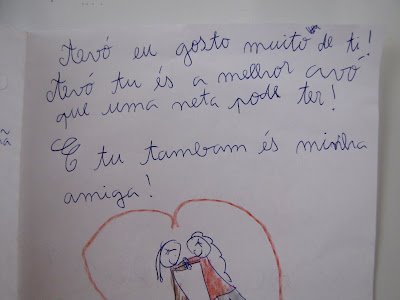 Avó eu gosto muito de ti!
Avó tu és a melhor avó
que uma neta pode ter!
E tu tambam és minha
amiga!